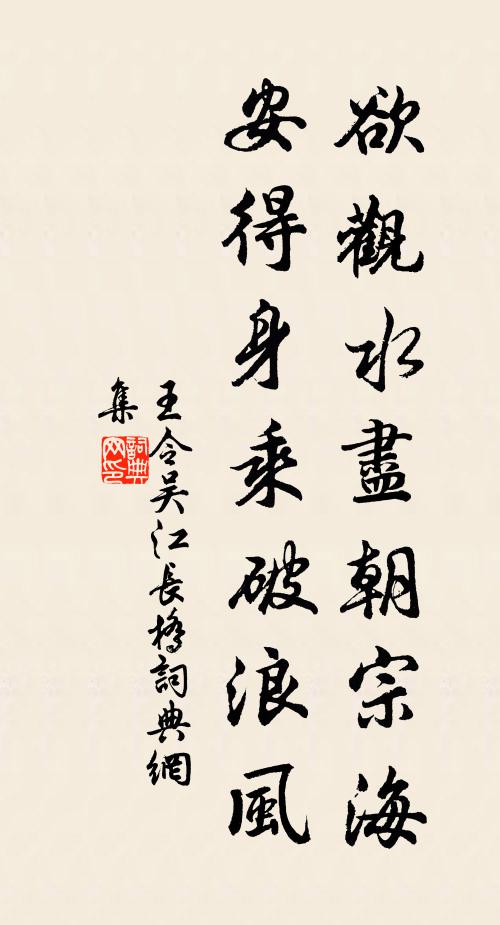 欲觀水盡朝宗海
安得身乘破浪風
王令吴江長橋詞典網
集
詞典
网印